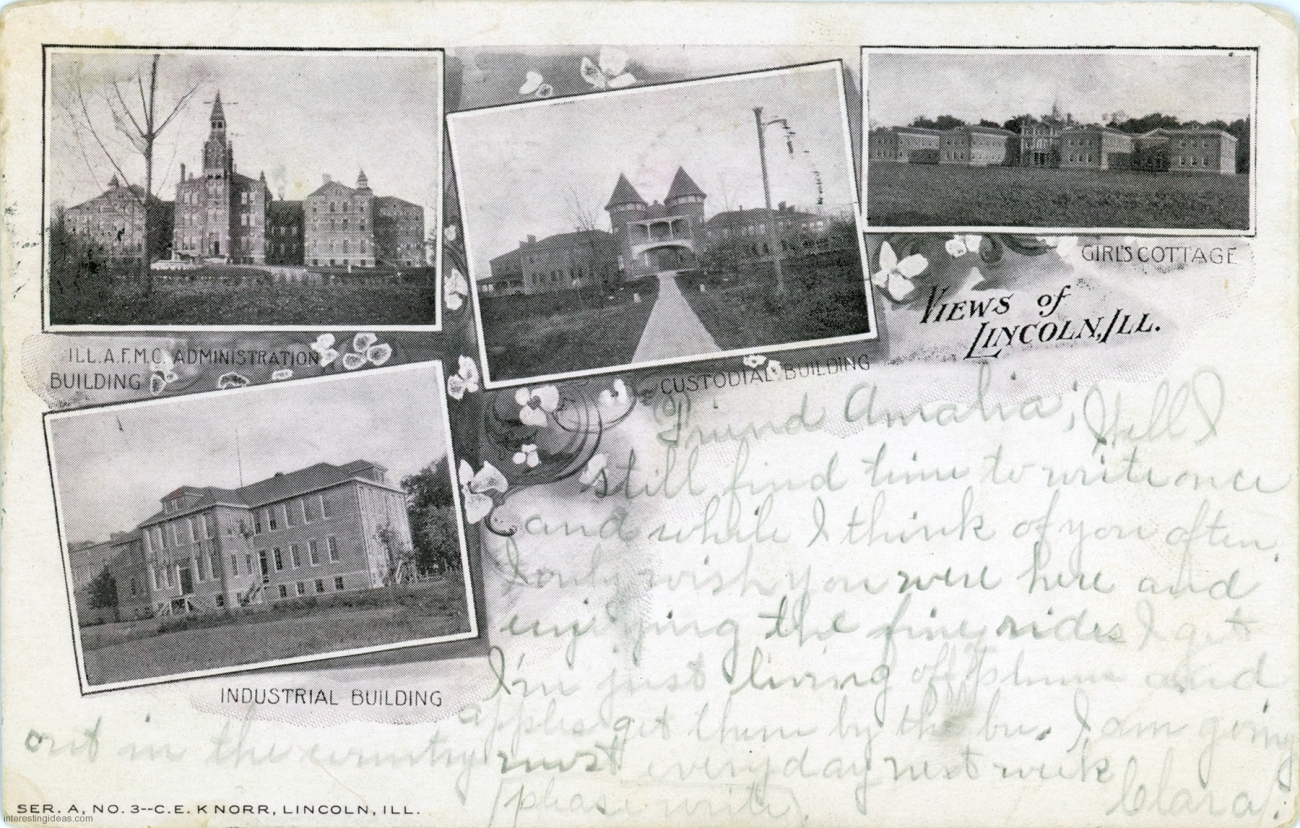 ILL. A.F.M.C. ADMINISTRATION
BUILDING
CUSTODIAL BUILDING
GIRL'S COTTAGE
VIEWS of
LINCOLN, ILL.
INDUSTRIAL BUILDING
Friend Amalia; Well I
still find time to write once
and while I think of you often.
I only wish you were here and
enjoying the fine rides I get
I'm just living off plums and
apples get them by the bu. I am going
out in the country most everyday next week
please write. Clara.
SER. A, NO. 3--C.E. KNORR, LINCOLN, ILL.
interestingideas.com